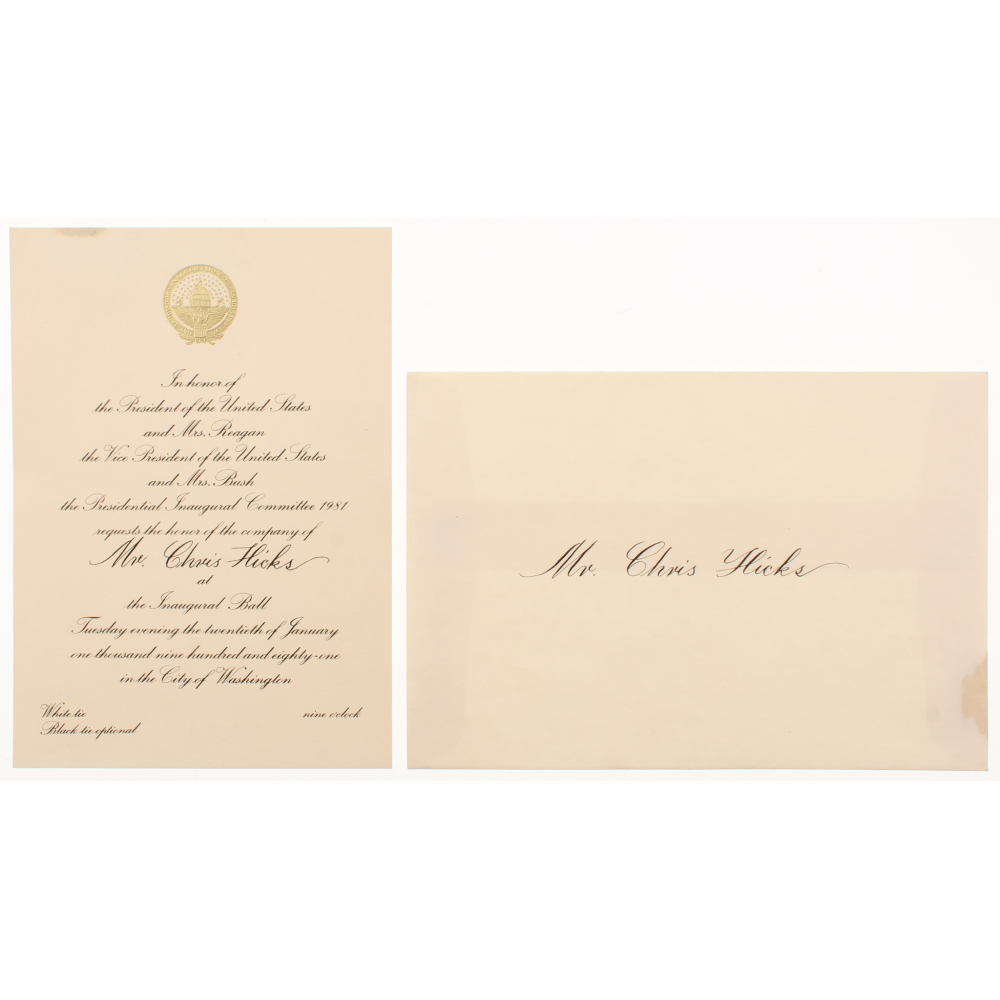 In honor of
the President of the United States
and Mrs. Reagan
the Vice President of the United States
and Mrs. Bush
the Presidential Inaugural Committee 1981
requests the honor of the company of
Mr. Chris Hicks
at
the Inaugural Ball
Tuesday evening the twentieth of January
one thousand nine hundred and eighty-one
in the City of Washington
White tie
Black tie optional
nine o'clock
Mr. Chris Hicks